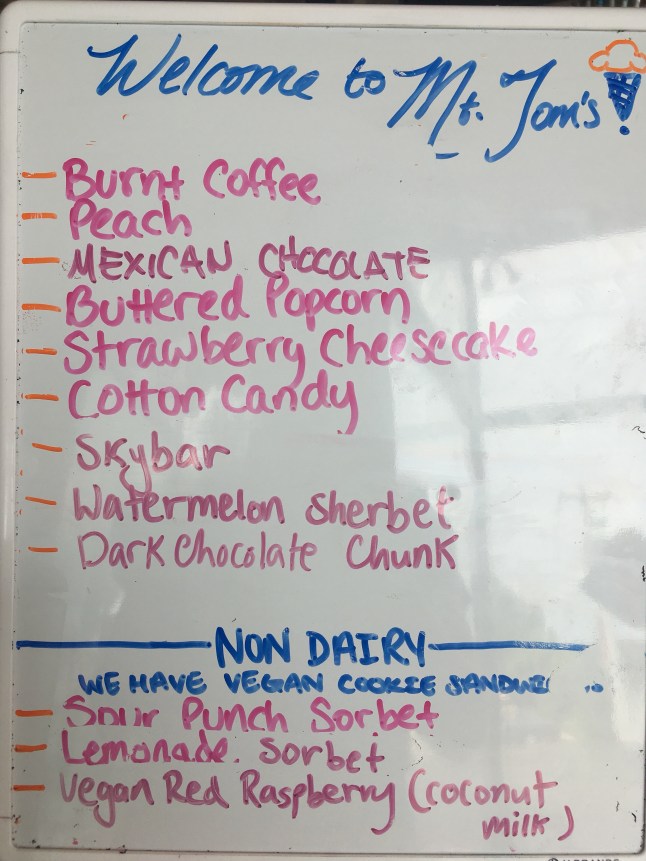 Welcome to Mt. Tom's!
Burnt Coffee
Peach
MEXICAN CHOCOLATE
Buttered Popcorn
Strawberry Cheesecake
Cotton Candy
Skybar
Watermelon Sherbet
Dark Chocolate Chunk
NON DAIRY
WE HAVE VEGAN COOKIE
Sour Punch Sorbet
Lemonade. Sorbet
Vegan Red Raspberry (coconut
milk)